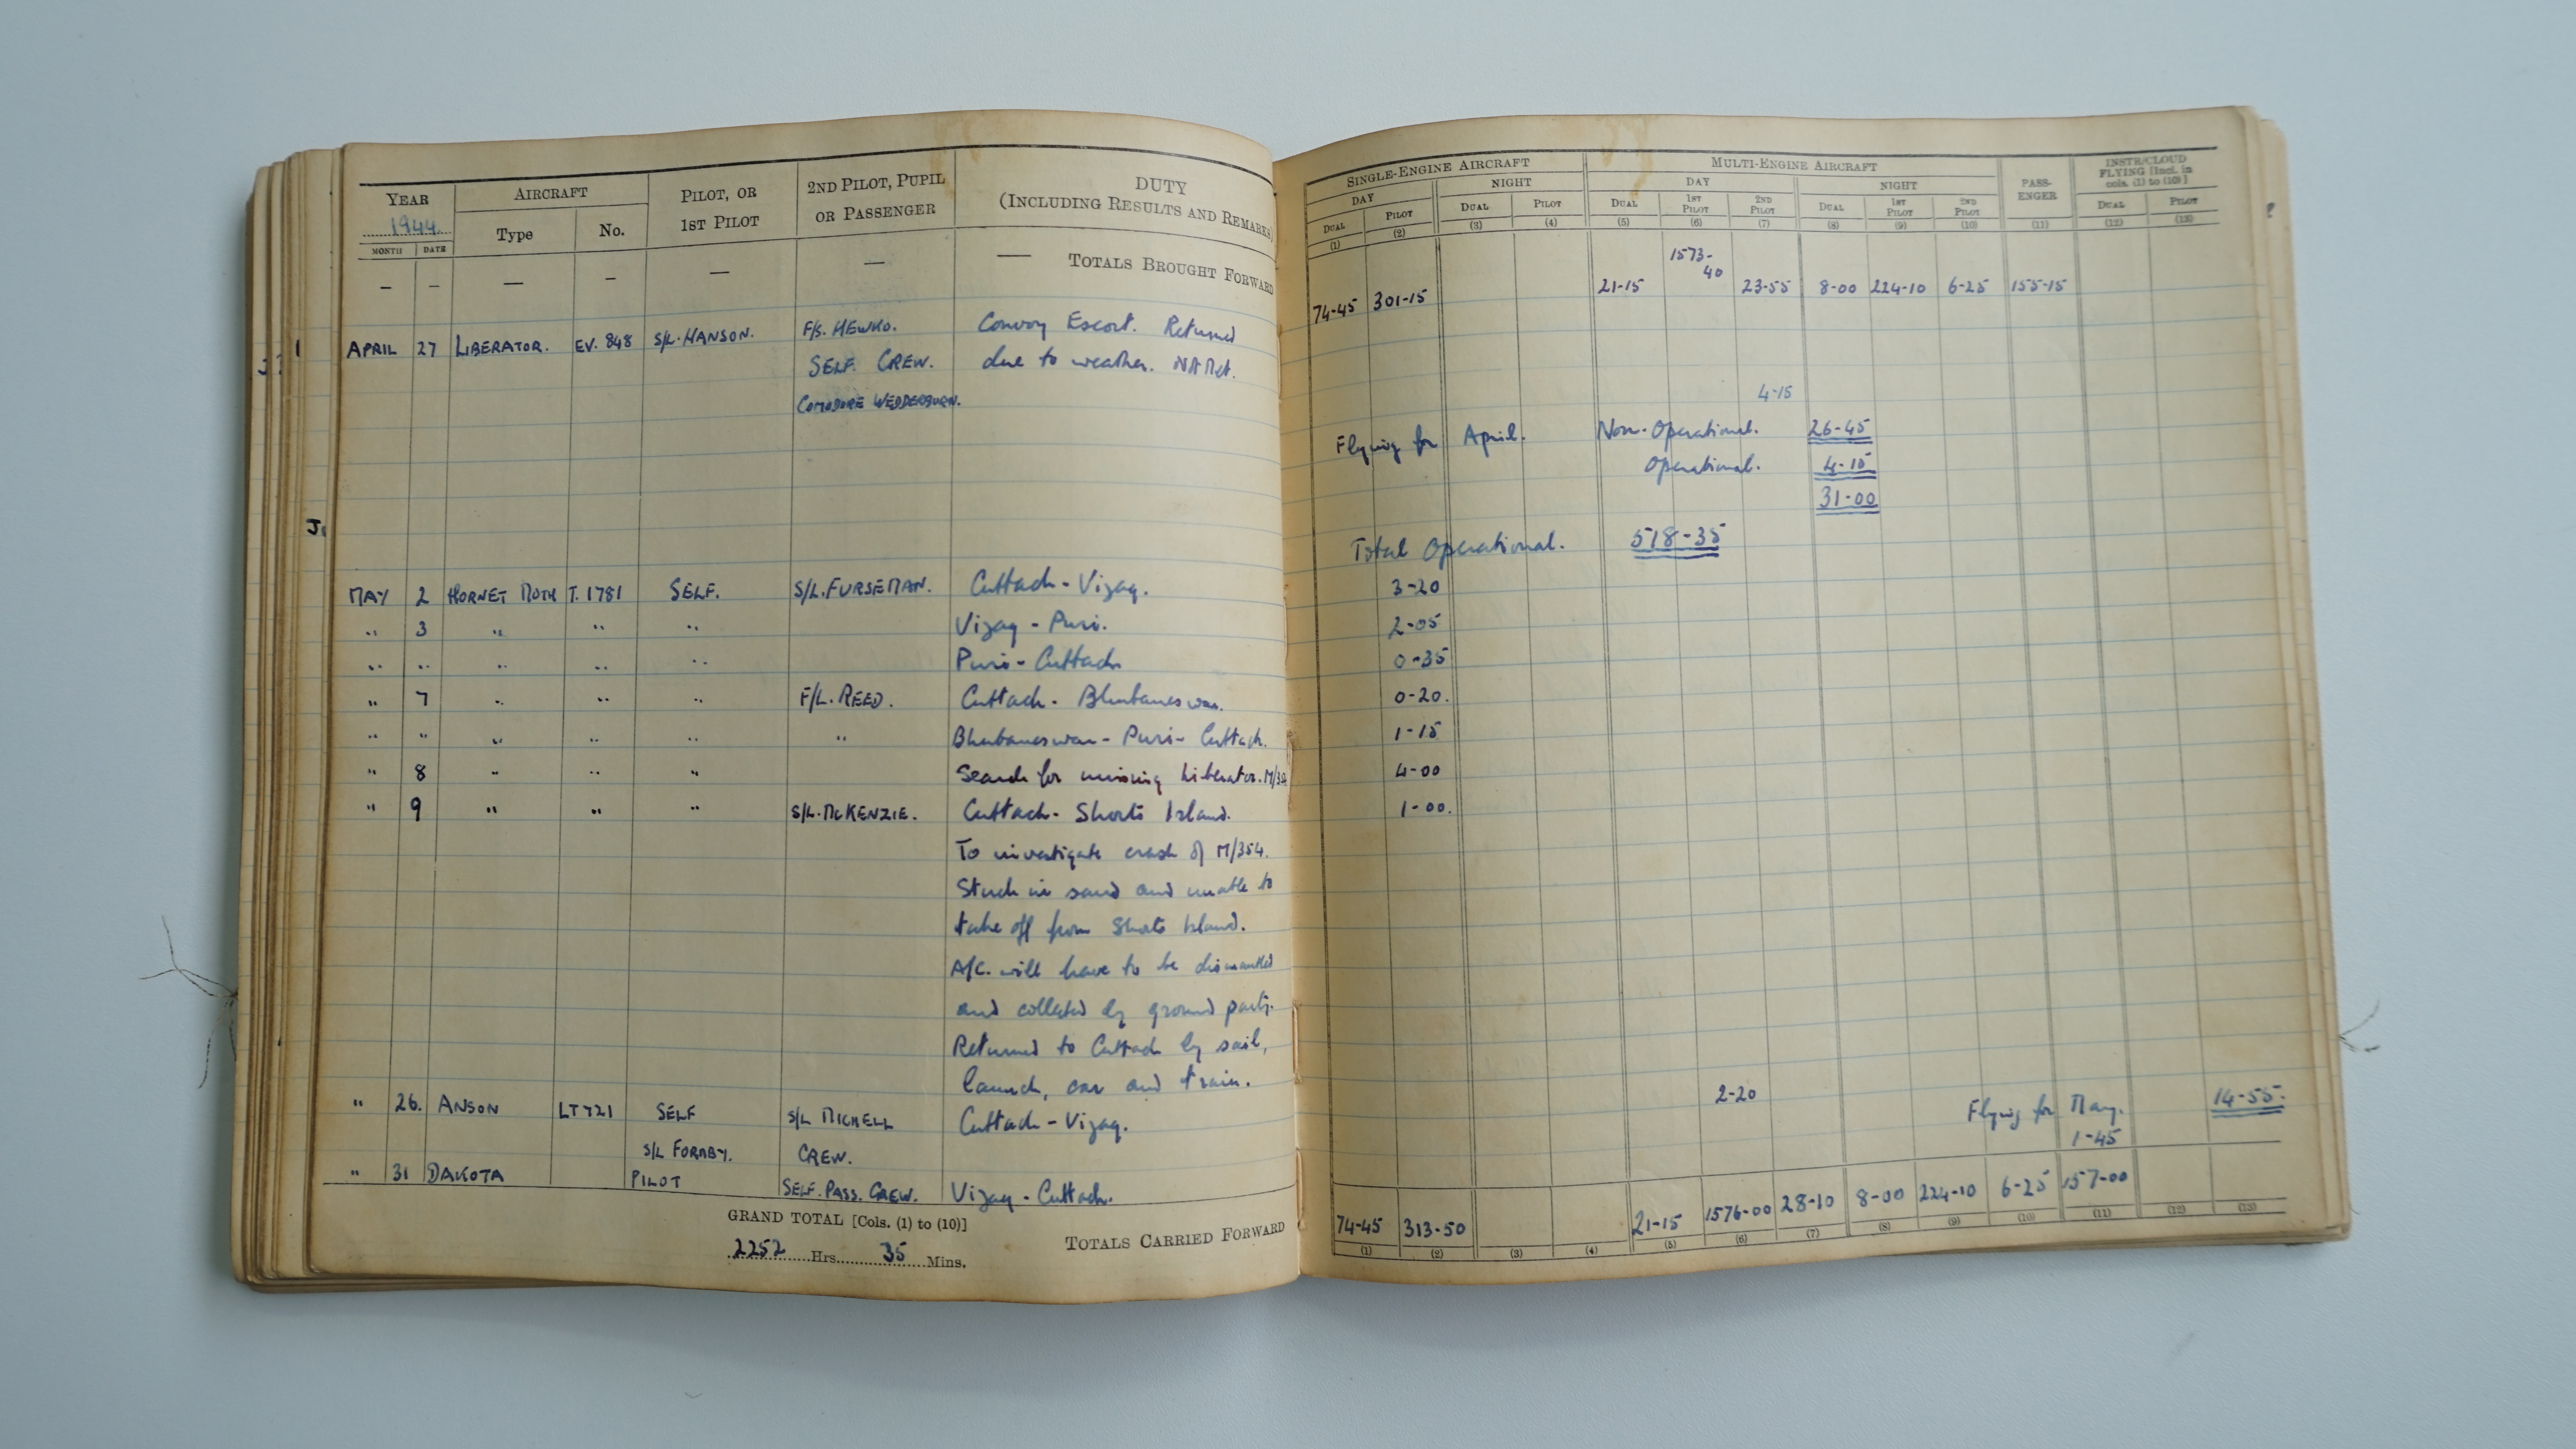 YEAR AIRCRAFT PILOT, OR 1ST PILOT 2ND PILOT, PUPIL OR PASSENGER DUTY (INCLUDING RESULTS AND REMARKS)
1944 Type No.
MONTH DATE
— — — — — — — TOTALS BROUGHT FORWARD
APRIL 27 LIBERATOR. EV. 848 S/L. HANSON. F/S. HEWKO. Convoy Escort. Returned
SELF. CREW. due to weather.
COMODORE WEDDERBURN.
MAY 2 HORNET MOTH T. 1781 SELF. S/L. FURSEMAN. Cuttack - Vizag.
" 3 " " " Vizag - Puri.
" " " " " Puri - Cuttack
" 7 " " " F/L. REED. Cuttack - Bhubaneswar.
" " " " " " Bhubaneswar - Puri - Cuttack.
" 8 " " " Search for missing Liberator. M/354
" 9 " " " S/L. McKENZIE. Cuttack - Shorts Island.
To investigate crash of M/354.
Stuck in sand and unable to
take off from Shorts Island.
A/C. will have to be dismantled
and collected by ground party.
Returned to Cuttack by sail,
launch, car and train.
" 26. ANSON LT721 SELF S/L MICHELL Cuttack - Vizag.
S/L FORNBY. CREW.
" 31 DAKOTA PILOT SELF. PASS. CREW. Vizag - Cuttack.
GRAND TOTAL [Cols. (1) to (10)]
2252 Hrs. 35 Mins.
TOTALS CARRIED FORWARD
SINGLE-ENGINE AIRCRAFT MULTI-ENGINE AIRCRAFT PASS-ENGER INSTR/CLOUD FLYING [Incl. in cols. (1) to (10)]
DAY NIGHT DAY NIGHT
DUAL PILOT DUAL PILOT DUAL 1ST PILOT 2ND PILOT DUAL 1ST PILOT 2ND PILOT DUAL PILOT
(1) (2) (3) (4) (5) (6) (7) (8) (9) (10) (11) (12) (13)
74-45 301-15 21-15 1573-40 23-55 8-00 224-10 6-25 155-15
4-15
Flying for April. Non-Operational. 26-45
Operational. 4-15
31-00
Total Operational. 518-35
3-20
2-05
0-35
0-20.
1-15
4-00
1-00.
2-20
Flying for May. 14-55.
1-45
74-45 313-50 21-15 1576-00 28-10 8-00 224-10 6-25 157-00
(1) (2) (3) (4) (5) (6) (7) (8) (9) (10) (11) (12) (13)